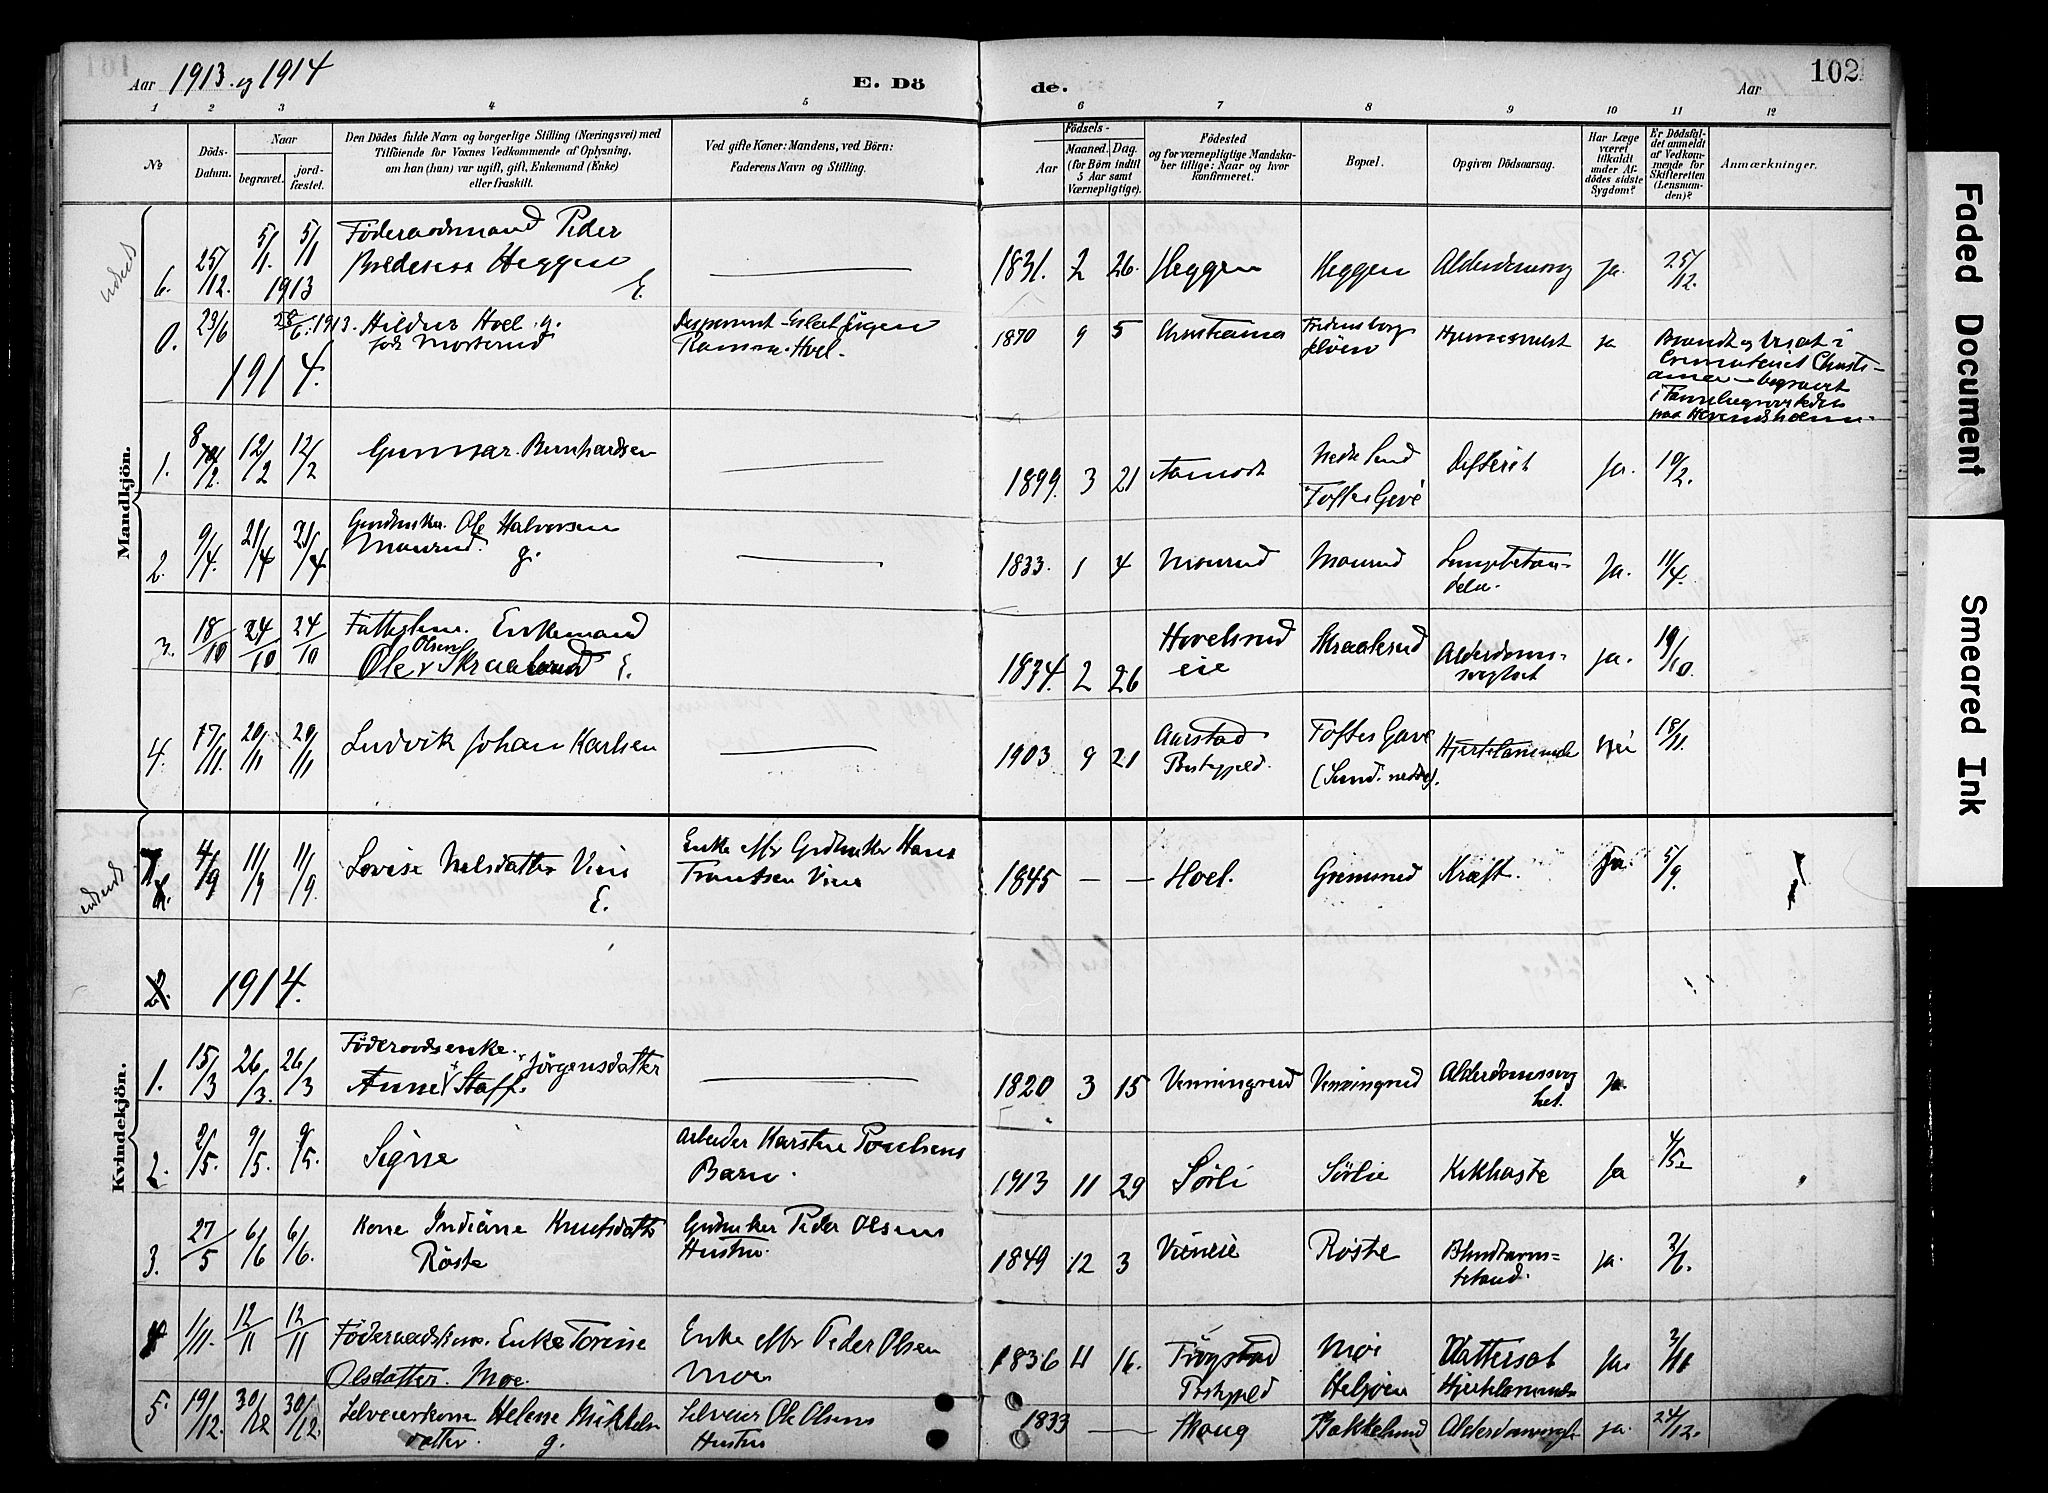 Aar 1913 og 1914
E. Dö
de.
Aar
102
1 2 3 4 5 6 7 8 9 10 11 12
No
Döds-
Datum.
Naar
begravet.
jord-
fæstet.
Den Dödes fulde Navn og borgerlige Stilling (Næringsvei) med
Tilföiende for Voxnes Vedkommende af Oplysning,
om han (hun) var ugift, gift, Enkemand (Enke)
eller fraskilt.
Ved gifte Koner: Mandens, ved Börn:
Faderens Navn og Stilling.
Födsels-
Aar
Maaned. Dag.
(for Börn indtil
5 Aar samt
Værnepligtige).
Födested
og for værnepligtige Mandska-
ber tillige: Naar og hvor
konfirmeret.
Bopæl.
Opgiven Dödsaarsag.
Har Læge
været
tilkaldt
under Af-
dödes sidste
Sygdom?
Er Dödsfal-
det anmeldt
af Vedkom-
mende for
Skifteretten
(Lensman-
den)?
Anmærkninger.
Mandkjön.
6. 25/12. 5/1. 5/1 1913
Föderaadsmand Peder
Heggen E.
1831. 2 26. Heggen Heggen Ja. 25/12.
0. 23/6 1913. Hildur Hoel. g.
född Mosterud
Hoel.
1870 9 5 Christiania Hjernesvulst ja
1914.
1. 12/2 12/2 Gunnar Bernhardsen
1899. 3 21 Aamodt Nedre Sund
Tofte Gave
Difterit Ja. 10/2.
2. 9/4. 21/4 21/4 Ole Halvorsen
Mourud. g.
1833. 1 4 Mourud Mourud Lungebetæn-
delse. Ja. 11/4.
3. 18/10 24/10 24/10 Enkemand
Ole Olsen Skraalsrud E.
1834. 2 26 Hovelsrud
eie Skraalsrud Alderdoms-
svaghet ja. 19/10.
4. 17/11. 20/11 20/11 Ludvik Johan Karlsen
1903 9 21
Tofte Gave
(Sund. nedre).
Hjertelammelse Nei 18/11.
4/9 11/9 11/9 Lovise Nelsdatter Vien
E.
Enke efter Grdbruker Hans
Frantsen Vien
1845 — — Hoel. Grimsrud Kræft. Ja 5/9.
2. 1914.
Kvindekjön.
1. 15/3 26/3. 26/3 Föderaadsenke
Anne Jörgensdatter Staff.
1820 3 15 Venningrud Venningrud Alderdomssvag
het. ja
2. 2/5. 9/5. 9/5. Signe
Arbeider Karsten Poulsens
Barn.
1913 11 29 Sörli Sörlie Kikhoste Ja 4/5
3. 27/5 6/6 6/6. Kone Indiane Knutsdatter
Röste
Grdbruker Peder Olsens
Hustru.
1849 12 3 Vieneie Röste Blindtarms-
betænd. ja. 2/6.
4 1/11. 12/11 12/11 Enke Torine
Olsdatter. Moe.
Enke efter Peder Olsen
Moe
1836 11 16. Frögstad
Prestegjeld
Moe
Helgöen
Vattersot
Hjertelammelse
Ja. 2/11
5. 19/12. 30/12 30/12. Selveierkone Helene Mikkels
datter. g.
Selveier Ole Olsens
Hustru
1833 — Skoug Bakkelund ja. 24/12.
Faded Document
Smeared Ink